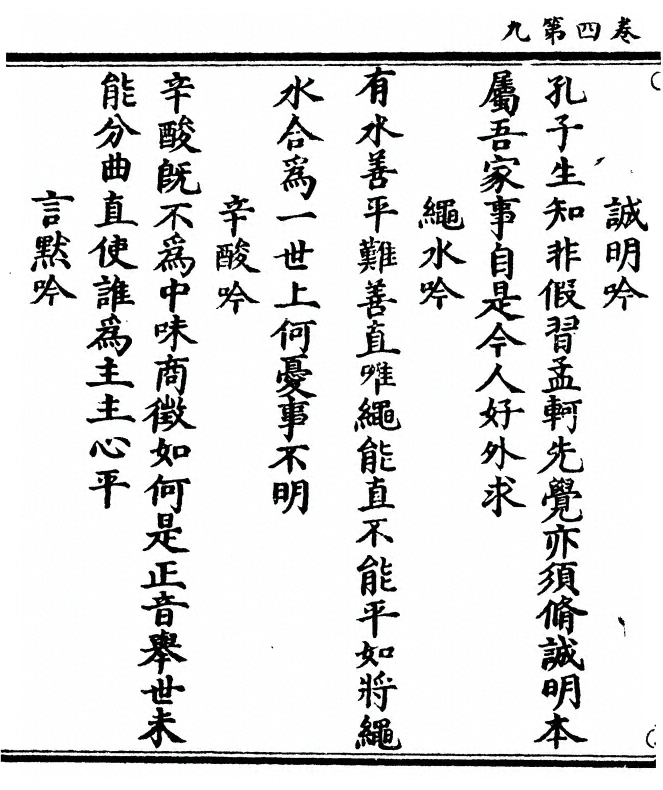 卷四第九
誠明吟
孔子生知非假習孟軻先覺亦須脩誠明本
屬吾家事自是今人好外求
繩水吟
有水善平難善直唯繩能直不能平如將繩
水合爲一世上何憂事不明
辛酸吟
辛酸既不爲中味商徵如何是正音舉世未
能分曲直使誰爲主主心平
言默吟